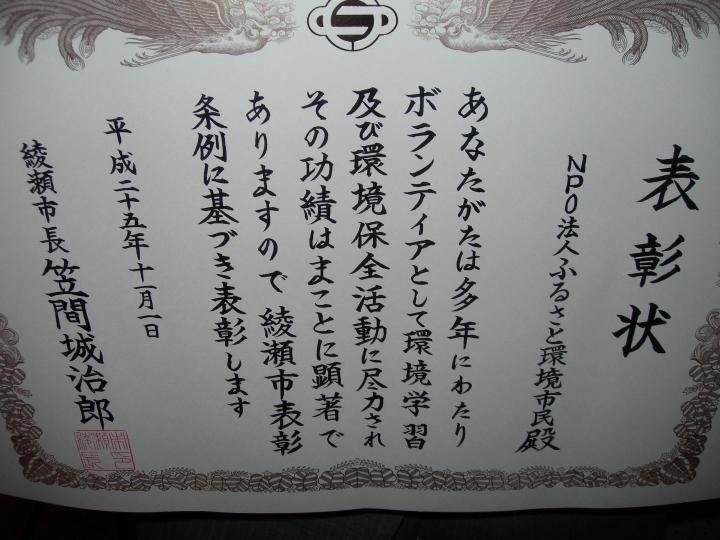 表彰状
NPO法人ふるさと環境市民殿
あなたがたは多年にわたり
ボランティアとして環境学習
及び環境保全活動に尽力され
その功績はまことに顕著で
ありますので綾瀬市表彰
条例に基づき表彰します
平成二十五年十一月一日
綾瀬市長笠間城治郎